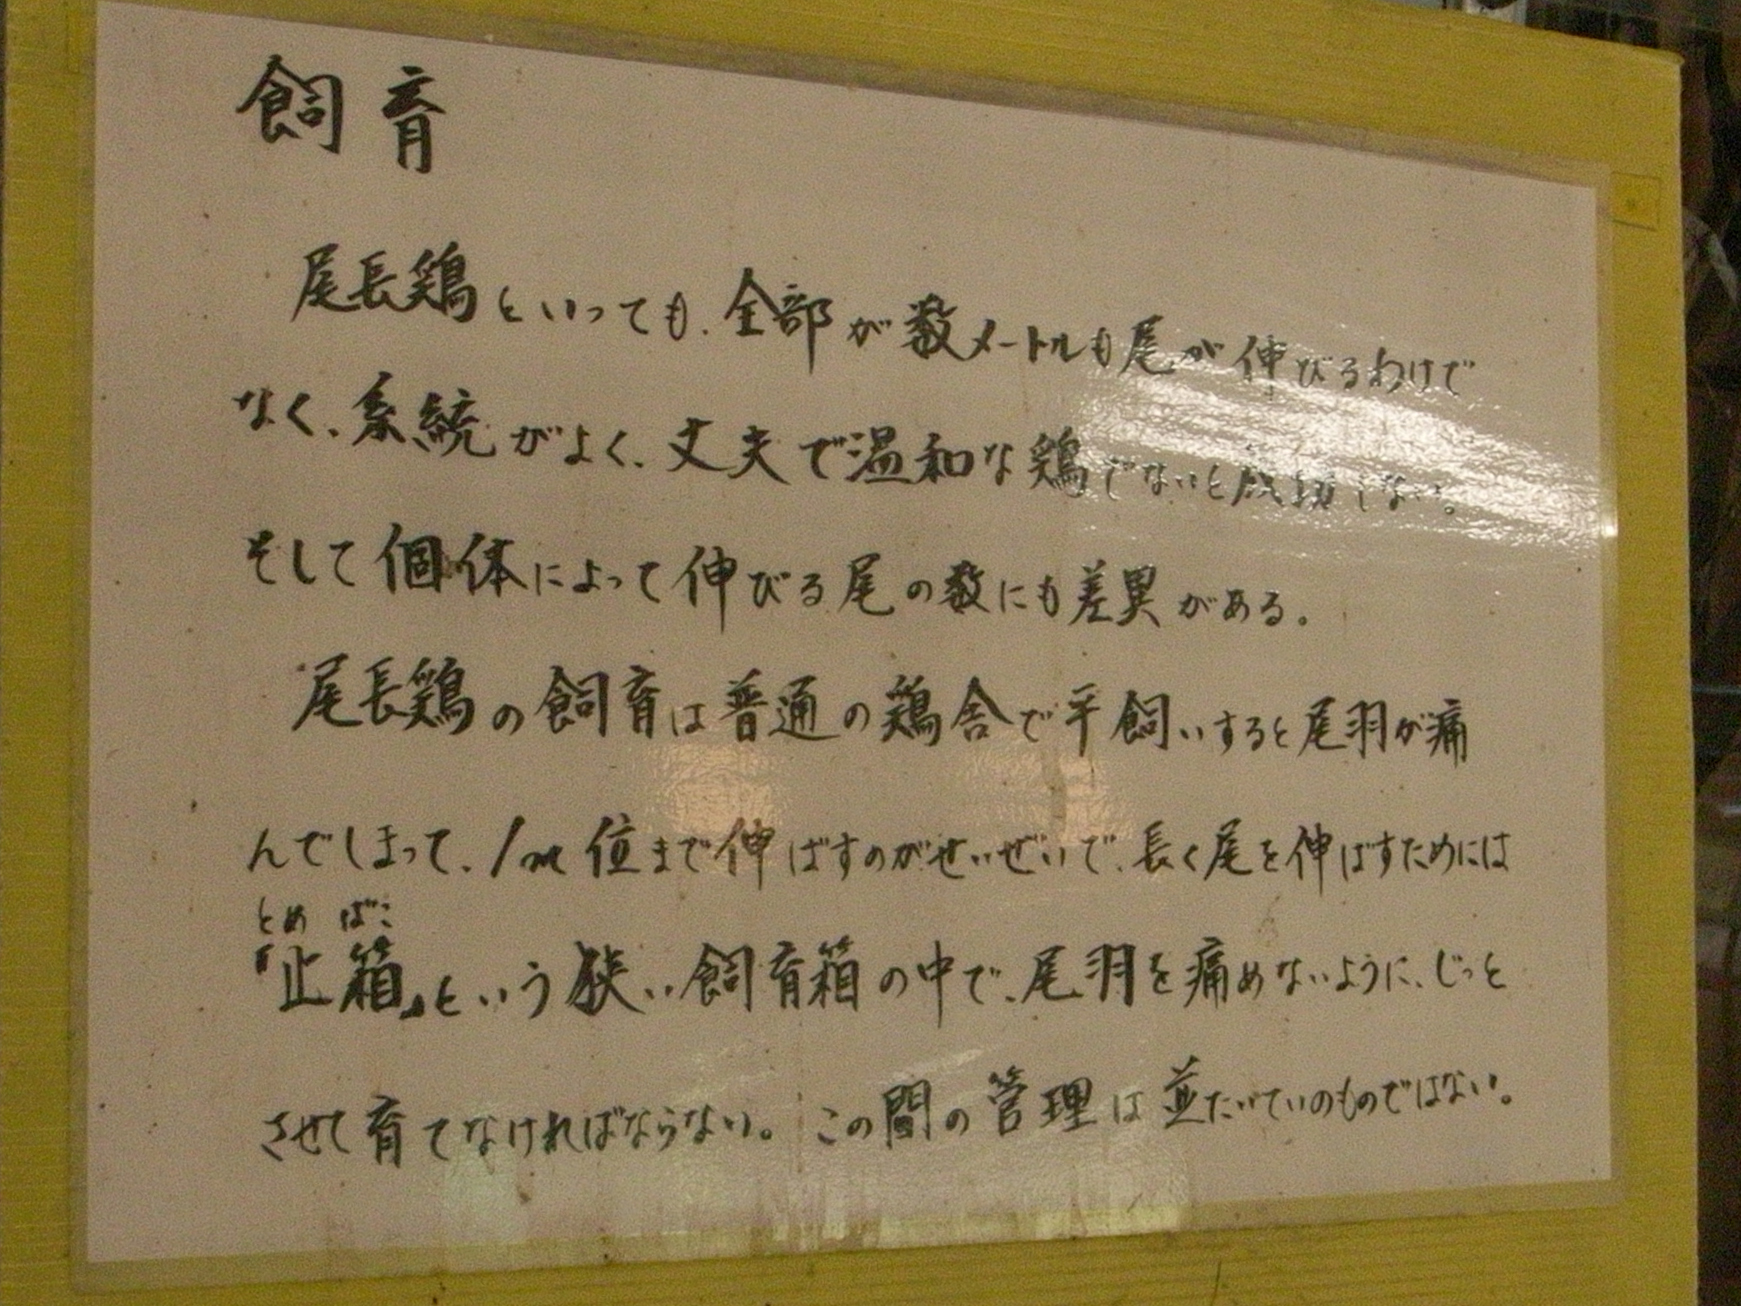 飼育
尾長鶏といっても、全部が数メートルも尾が伸びるわけで
なく、系統がよく、丈夫で温和な鶏でないと成功しない。
そして個体によって伸びる尾の数にも差異がある。
尾長鶏の飼育は普通の鶏舎で平飼いすると尾羽が痛
んでしまって、1m位まで伸ばすのがせいぜいで、長く尾を伸ばすためには
とめ ばこ
『止箱』という狭い飼育箱の中で、尾羽を痛めないように、じっと
させて育てなければならない。この間の管理は並たいていのものではない。